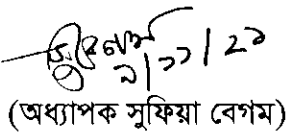 ৯/১১/২১
(অধ্যাপক সুফিয়া বেগম)